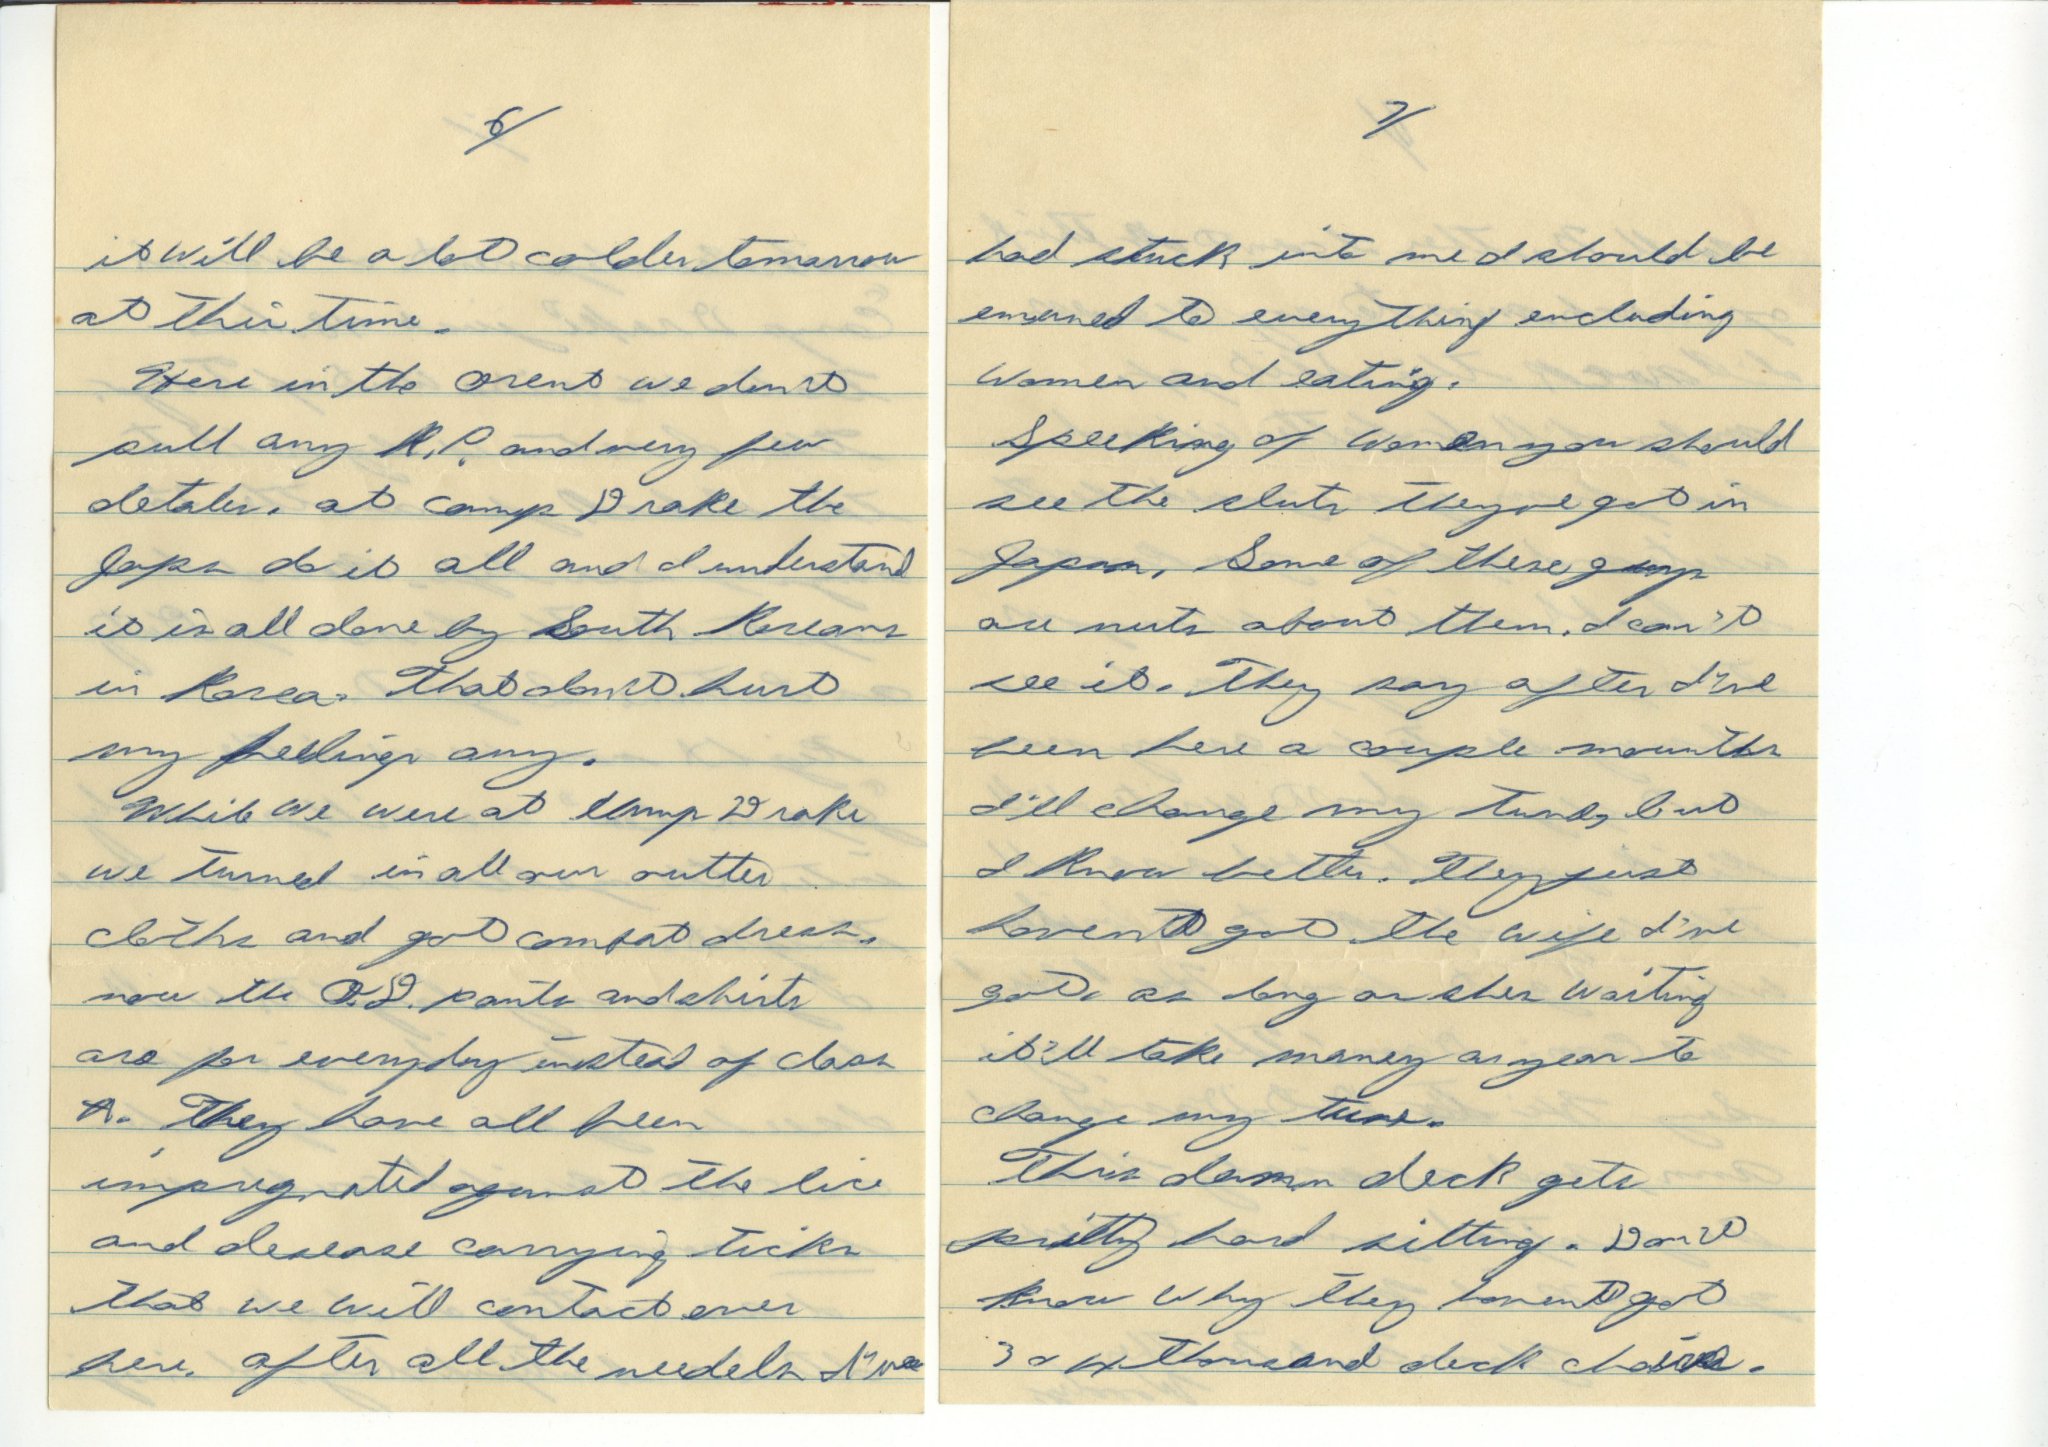 6/
it will be a lot colder tomarrow
at this time.
Here in the orent we don't
pull any K.P. and very few
detales. at camp Drake the
Japs do it all and I understand
it is all done by South Koreans
in Korea. That don't hurt
my feelings any.
While we were at Camp Drake
we turned in all our outter
cloths and got combat dress.
now the O.D. pants and shirts
are for everyday instead of class
A. They have all been
impregnated against the lice
and desease carrying ticks
that we will contact over
here. after all the needels I've
7/
had stuck into me I should be
emuned to everything excluding
women and eating.
Speeking of women you should
see the sluts they've got in
Japan. Some of these guys
are nuts about them. I can't
see it. They say after I've
been here a couple mounths
I'll change my tune, but
I know better. They just
haven't got the wife I've
got. as long as shes waiting
it'll take maney a year to
change my tune.
This damn deck gets
pritty hard sitting. Don't
know why they haven't got
3 or 4 thousand deck chairs.